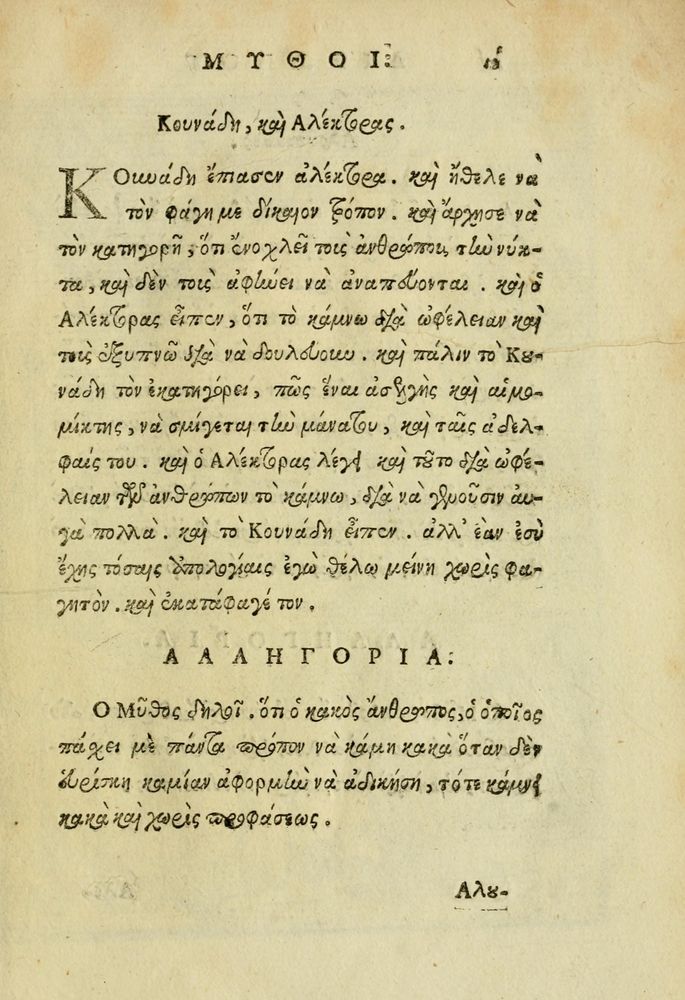 ΜΥΘΟΙ
Κουνάδη, καὶ Αλέκτορας.
ΚΟυνάδη ἔπιασεν ἀλέκτορα. καὶ ἤθελε νὰ
τὸν φάγῃ με δίκαιον τρόπον. καὶ ἄρχησε νὰ
τὸν κατηγορῇ, ὅτι ἐνοχλεῖ τοὺς ἀνθρώπους τὴν νύκ-
τα, καὶ δὲν τοὺς ἀφίνει νὰ ἀναπεύονται. καὶ ὁ
Αλέκτορας εἶπεν, ὅτι τὸ κάμνω διὰ ὠφέλειαν καὶ
τοὺς ἐξυπνῶ διὰ νὰ δουλεύουν. καὶ πάλιν τὸ Κου-
νάδη τὸν ἐκατηγόρει, πῶς ἔναι ἀσελγὴς καὶ αἱμο-
μίκτης, νὰ σμίγεται τὴν μάνατου, καὶ ταῖς ἀδελ-
φαίς του. καὶ ὁ Αλέκτορας λέγει καὶ τοῦτο διὰ ὠφέ-
λειαν τῶν ἀνθρώπων τὸ κάμνω, διὰ νὰ γεμοῦσιν αυ-
γὰ πολλὰ. καὶ τὸ Κουνάδη εἶπεν. ἀλλ' ἐὰν ἐσὺ
ἔχῃς τόσαις ἀπολογίαις ἐγὼ θέλω μείνη χωρὶς φα-
γητὸν. καὶ ἐκατάφαγέ τον.
ΑΛΛΗΓΟΡΙΑ:
Ο Μῦθος δηλοῖ. ὅτι ὁ κακὸς ἄνθρωπος, ὁ ὁποῖος
πάσχει μὲ πάντα τρόπον νὰ κάμη κακὰ ὅταν δὲν
εὑρίσκη καμίαν ἀφορμὴν νὰ ἀδικήσῃ, τότε κάμνει
κακὰ καὶ χωρὶς προφάσεως.
Αλου-